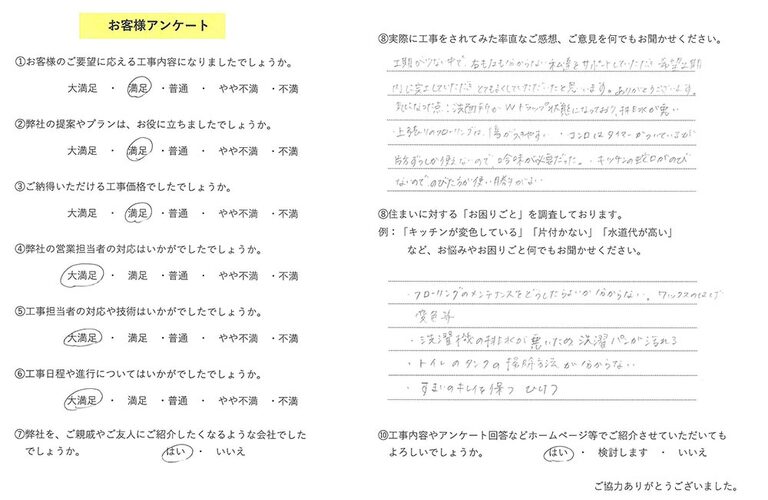 お客様アンケート
①お客様のご要望に応える工事内容になりましたでしょうか。
大満足 ・ 満足 ・普通 ・ やや不満 ・不満
②弊社の提案やプランは、お役に立ちましたでしょうか。
大満足 ・ 満足 ・普通 ・ やや不満 ・不満
③ご納得いただける工事価格でしたでしょうか。
大満足 ・ 満足 ・普通 ・ やや不満 ・不満
④弊社の営業担当者の対応はいかがでしたでしょうか。
大満足 ・ 満足 ・普通 ・ やや不満 ・不満
⑤工事担当者の対応や技術はいかがでしたでしょうか。
大満足 ・ 満足 ・普通 ・ やや不満 ・不満
⑥工事日程や進行についてはいかがでしたでしょうか。
大満足 ・ 満足 ・普通 ・ やや不満 ・不満
⑦弊社を、ご親戚やご友人にご紹介したくなるような会社でした
でしょうか。 はい ・ いいえ
⑧実際に工事をされてみた率直なご感想、ご意見を何でもお聞かせください。
工期が少ない中で、右も左も分からない私達をサポートしていただき 希望工期
内に完工していただき とてもよくしていただいたと思います。ありがとうございます。
気になった点：洗面所が Wトラップ状態になっており、排水が悪い
・上張りのフローリングは、傷がつきやすい ・コンロはタイマーがついているが
しか使えないので、吟味が必要だった。・キッチンの蛇口がのび
ないので、のびた方が使い勝手がよい
⑧住まいに対する「お困りごと」を調査しております。
例：「キッチンが変色している」「片付かない」「水道代が高い」
など、お悩みやお困りごと何でもお聞かせください。
・フローリングのメンテナンスをどうしたらよいか分からない。ワックスのはげ
変色等
・洗濯機の排水が悪いため 洗濯パンが汚れる
・トイレのタンクの掃除方法が分からない
・すまいのキレイを保つ ひけつ
⑩工事内容やアンケート回答などホームページ等でご紹介させていただいても
よろしいでしょうか。 はい ・ 検討します ・ いいえ
ご協力ありがとうございました。